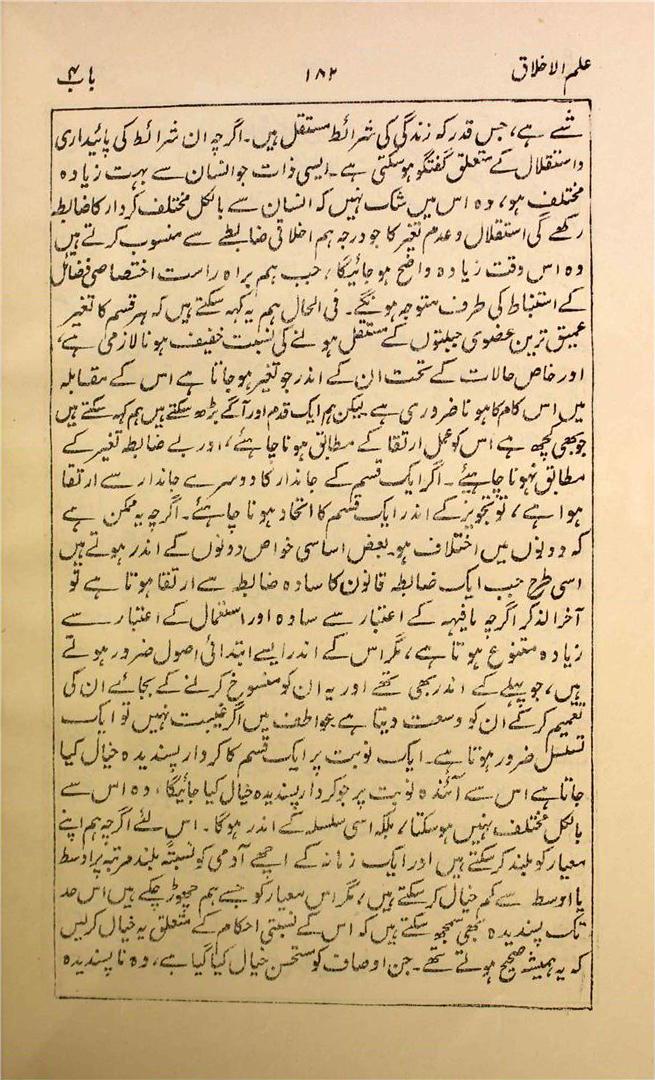 علم الاخلاق
۱۸۲
باب ۴
شے ہے، جس قدر کہ زندگی کی شرائط مستقل ہیں۔ اگرچہ ان شرائط کی پائیداری
و استقلال کے متعلق گفتگو ہوسکتی ہے۔ ایسی ذات جو انسان سے بہت زیادہ
مختلف ہو، وہ اس میں شک نہیں کہ انسان سے بالکل مختلف کردار کا ضابطہ
رکھے گی استقلال و عدم تغیر کا جو درجہ ہم اخلاقی ضابطے سے منسوب کرتے ہیں
وہ اس وقت زیادہ واضح ہوجائیگا، جب ہم براہ راست اختصاصی فضائل
کے استنباط کی طرف متوجہ ہونگے۔ فی الحال ہم یہ کہہ سکتے ہیں کہ ہر قسم کا تغیر
عمیق ترین عضوی جبلتوں کے مستقل ہونے کی نسبت خفیف ہونا لازمی ہے،
اور خاص حالات کے تحت ان کے اندر جو تغیر ہوجاتا ہے اس کے مقابلہ
میں اس کا کم ہونا ضروری ہے۔ لیکن ہم ایک قدم اور آگے بڑھ سکتے ہیں ہم کہہ سکتے ہیں
جو بھی کچھ ہے اس کو عمل ارتقا کے مطابق ہونا چاہئے، اور بے ضابطہ تغیر کے
مطابق نہونا چاہیئے۔ اگر ایک قسم کے جاندار کا دوسرے جاندار سے ارتقا
ہوا ہے، تو تجویز کے اندر ایک قسم کا اتحاد ہونا چاہئے۔ اگرچہ یہ ممکن ہے
کہ دونوں میں اختلاف ہو۔ بعض اساسی خواص دونوں کے اندر ہوتے ہیں
اسی طرح جب ایک ضابطہ قانون کا سادہ ضابطہ سے ارتقا ہوتا ہے تو
آخر الذکر اگرچہ مافیہہ کے اعتبار سے سادہ اور استعمال کے اعتبار سے
زیادہ متنوع ہوتا ہے، مگر اس کے اندر ایسے ابتدائی اصول ضرور ہوتے
ہیں، جو پہلے کے اندر بھی تھے اور یہ ان کو منسوخ کرنے کے بجائے ان کی
تعمیم کرکے ان کو وسعت دیتا ہے۔ عواطف میں اگر عینیت نہیں تو ایک
تسلسل ضرور ہوتا ہے۔ ایک نوبت پر ایک قسم کا کردار پسندیدہ خیال کیا
جاتا ہے اس سے آئندہ نوبت پر جو کردار پسندیدہ خیال کیا جائیگا، وہ اس سے
بالکل مختلف نہیں ہوسکتا، بلکہ اسی سلسلہ کے اندر ہوگا۔ اس لئے اگرچہ ہم اپنے
معیار کو بلند کرسکتے ہیں اور ایک زمانہ کے اچھے آدمی کو نسبتہً بلند مرتبہ پر اوسط
یا اوسط سے کم خیال کرسکتے ہیں، مگر اس معیار کو جسے ہم چھوڑ چکے ہیں اس حد
تک پسندیدہ بھی سمجھ سکتے ہیں کہ اس کے نسبتی احکام کے متعلق یہ خیال کرلیں
کہ یہ ہمیشہ صحیح ہوتے تھے۔ جن اوصاف کو مستحسن خیال کیا گیا ہے، وہ ناپسندیدہ